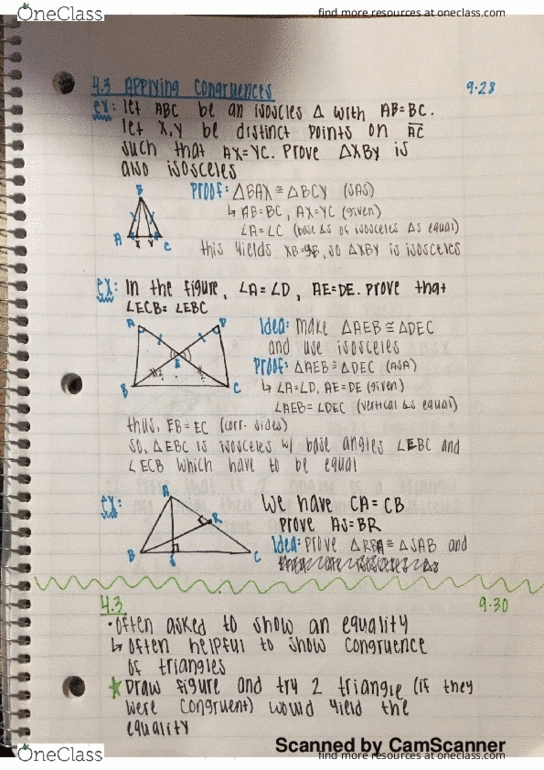 OneClass
find more resources at oneclass.com
4.3 Applying Congruences 9.28
ex: let ABC be an isoscles Δ with AB=BC.
let X,Y be distinct points on AC
such that AX=YC. Prove ΔXBY is
also isosceles
B
A X Y C
Proof: ΔBAX ≅ ΔBCY (SAS)
↳ AB=BC, AX=YC (given)
∠A=∠C (base ∠s of isosceles Δs equal)
this yields XB=YB, so ΔXBY is isosceles
ex: In the figure, ∠A=∠D, AE=DE. Prove that
∠ECB=∠EBC
A D
E
B C
Idea: make ΔAEB ≅ ΔDEC
and use isosceles
Proof: ΔAEB ≅ ΔDEC (ASA)
↳ ∠A=∠D, AE=DE (given)
∠AEB=∠DEC (vertical ∠s equal)
thus, EB=EC (corr. sides)
so, ΔEBC is isosceles w/ base angles ∠EBC and
∠ECB which have to be equal
ex:
A
R
B C
We have CA=CB
prove AS=BR
Idea: prove ΔRBA ≅ ΔSAB and
4.3 9.30
• often asked to show an equality
↳ often helpful to show congruence
of triangles
☆ Draw figure and try 2 triangle (if they
were congruent) would yield the
equality
Scanned by CamScanner
OneClass
find more resources at oneclass.com